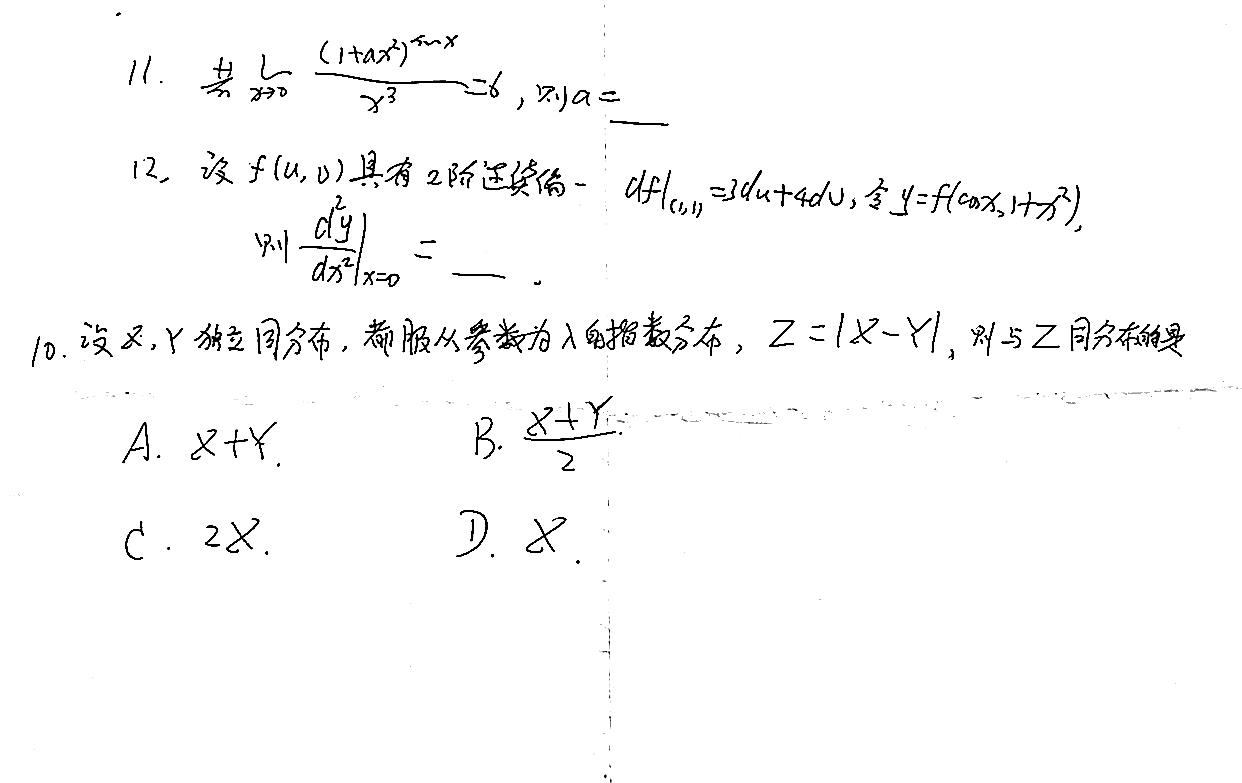 11. 若 L x→0 (1+ax²)^sinx / x³ =6, 则a= ___
12. 设 f(u,v)具有2阶连续偏- df|(1,1)=3du+4dv, 令 y=f(cosx,1+x²),
则 d²y/dx²|x=0 = ___ .
10. 设X,Y独立同分布, 都服从参数为λ的指数分布, Z=|X-Y|, 则与Z同分布的是
A. X+Y. B. X+Y/2.
C. 2X. D. X.